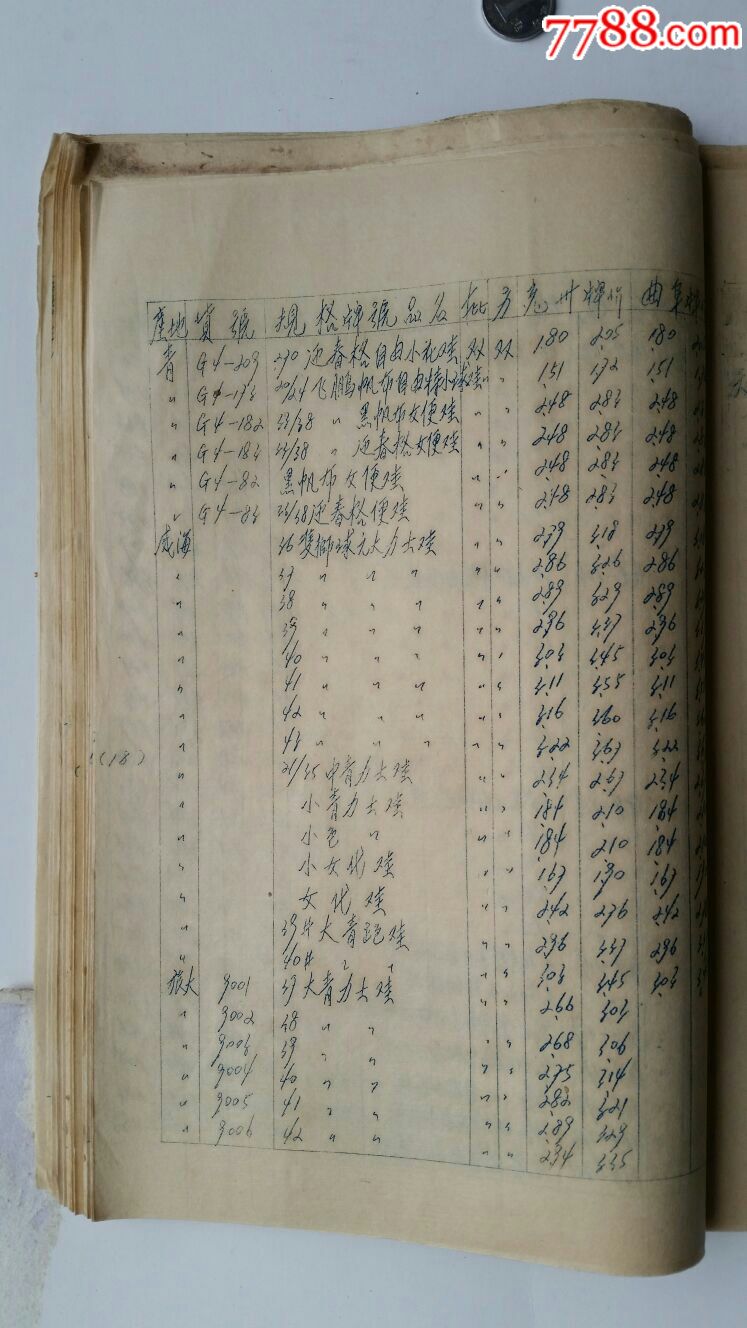 7788.com
產地 貨號 規格牌號品名 批 另 兗州 牌价 曲阜
青 G4-209 230 迎春格自由小孩鞋 双 双 180 205 180
〃 20/24 飞鹏帆布自由 〃 〃 151 172 151
〃 G4-182 33/38 〃 黑帆布女便鞋 〃 〃 248 283 248
〃 G4-183 33/38 〃 迎春格女便鞋 〃 〃 248 283 248
〃 G4-82 黑帆布女便鞋 〃 〃 248 283 248
〃 G4-83 33/38迎春格便鞋 〃 〃 248 283 248
威海 36 隻獅球元大力士鞋 〃 〃 279 318 279
〃 37 〃 〃 〃 〃 〃 286 326 286
〃 38 〃 〃 〃 〃 〃 289 329 289
〃 39 〃 〃 〃 〃 〃 296 337 296
〃 40 〃 〃 〃 〃 〃 303 345 303
〃 41 〃 〃 〃 〃 〃 311 355 311
〃 42 〃 〃 〃 〃 〃 316 360 316
〃 43 〃 〃 〃 〃 〃 322 367 322
(18) 〃 31/35 中青力士鞋 〃 〃 234 267 234
〃 小青力士鞋 〃 〃 184 210 184
〃 小色 〃 〃 〃 184 210 184
〃 小女代鞋 〃 〃 167 190 167
〃 女代鞋 〃 〃 242 276 242
〃 39# 大青跑鞋 〃 〃 296 337 296
〃 40# 〃 〃 〃 〃 303 345 303
旅大 9001 37 大青力士鞋 〃 〃 266 303
〃 9002 38 〃 〃 〃 〃 268 306
〃 9003 39 〃 〃 〃 〃 275 314
〃 9004 40 〃 〃 〃 〃 282 321
〃 9005 41 〃 〃 〃 〃 289 329
〃 9006 42 〃 〃 〃 〃 294 335